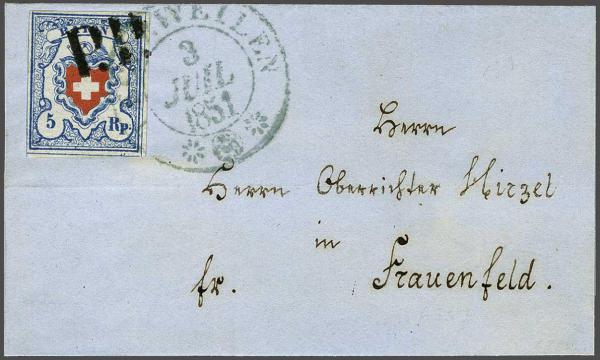 RAYON
P.P.
5 Rp.
WEILEN
3
JUIL
1851
Herrn
Herrn Oberrichter Hirzel
in
fr. Frauenfeld.